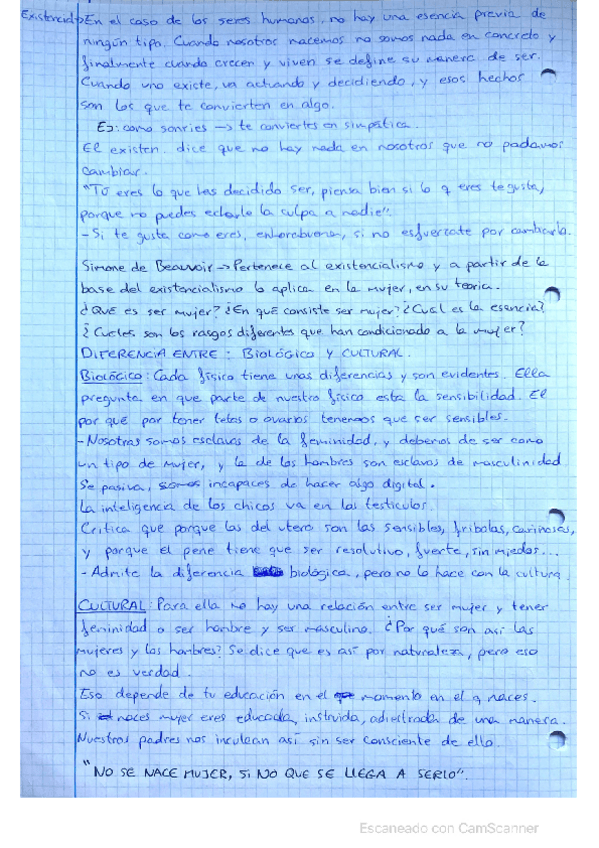 Existencial→En el caso de los seres humanos, no hay una esencia previa de
ningún tipo. Cuando nosotros nacemos no somos nada en concreto y
finalmente cuando crecen y viven se define su manera de ser.
Cuando uno existe, va actuando y decidiendo, y esos hechos
son los que te convierten en algo.
Ej: como sonries → te conviertes en simpática.
El existen. dice que no hay nada en nosotros que no podamos
cambiar.
"Tú eres lo que has decidido ser, piensa bien si lo q eres te gusta,
porque no puedes echarle la culpa a nadie".
- Si te gusta como eres, enhorabuena, si no esfuerzate por cambiarlo.
Simone de Beauvoir → Pertenece al existencialismo y a partir de la
base del existencialismo lo aplica en la mujer, en su teoría.
¿QUÉ es ser mujer? ¿En qué consiste ser mujer? ¿Cual es la esencia?
¿Cuales son los rasgos diferentes que han condicionado a la mujer?
DIFERENCIA ENTRE: BIOLÓGICO Y CULTURAL.
BIOLÓGICO: Cada físico tiene unas diferencias y son evidentes. Ella
pregunta en que parte de nuestro físico esta la sensibilidad. El
por qué por tener tetas o ovarios tenemos que ser sensibles.
- Nosotras somos esclavas de la feminidad, y debemos de ser como
un tipo de mujer, y la de los hombres son esclavos de masculinidad
Se pasiva, somos incapaces de hacer algo digital.
La inteligencia de los chicos va en los testiculos.
Critica que porque las del utero son las sensibles, fribolas, cariñosas,
y porque el pene tiene que ser resolutivo, fuerte, sin miedos...
- Admite la diferencia biológica, pero no lo hace con la cultura.
CULTURAL: Para ella no hay una relación entre ser mujer y tener
feminidad o ser hombre y ser masculino. ¿Por qué son así las
mujeres y los hombres? Se dice que es así por naturaleza, pero eso
no es verdad.
Eso depende de tu educación en el momento en el q naces.
Si naces mujer eres educada, instruida, adiestrada de una manera.
Nuestros padres nos inculcan así sin ser consciente de ello.
"NO SE NACE MUJER, SI NO QUE SE LLEGA A SERLO".
Escaneado con CamScanner